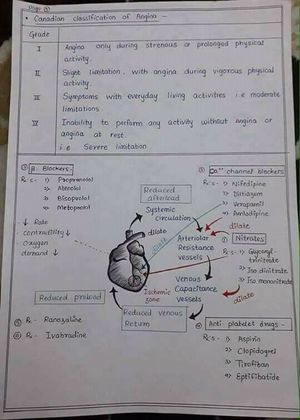 • Canadian classification of Angina –
Grade
I Angina only during strenous or prolonged physical
activity.
II Slight limitation, with angina during vigorous physical
activity.
III Symptoms with everyday living activities i.e moderate
limitations
IV Inability to perform any activity without angina or
angina at rest.
i.e Severe limitation
β- Blockers:-
Rx:s- 1) Propranolol
2) Atenolol
3) Bisoprolol
4) Metoprolol
↓ Rate
contractility ↓
Oxygen
demand ↓
Reduced
afterload
Systemic
circulation
dilate
Ca++ channel blockers
Rx:s- 1) Nifedipine
2) Diltiazem
3) Verapamil
4) Amlodipine
dilate
Arteriolar
Resistance
vessels
Nitrates
Rx:s- 1) Glyceryl-
trinitrate
2) Iso dinitrate
3) Iso mononitrate
dilate
Venous
Capacitance
vessels
Ischemic
zone
Reduced preload
Reduced venous
Return
Rx- Ranozaline
Rx- Ivabradine
Anti- platelet drugs-
Rx:s- 1) Aspirin
2) Clopidogrel
3) Tirofiban
4) Eptifibatide